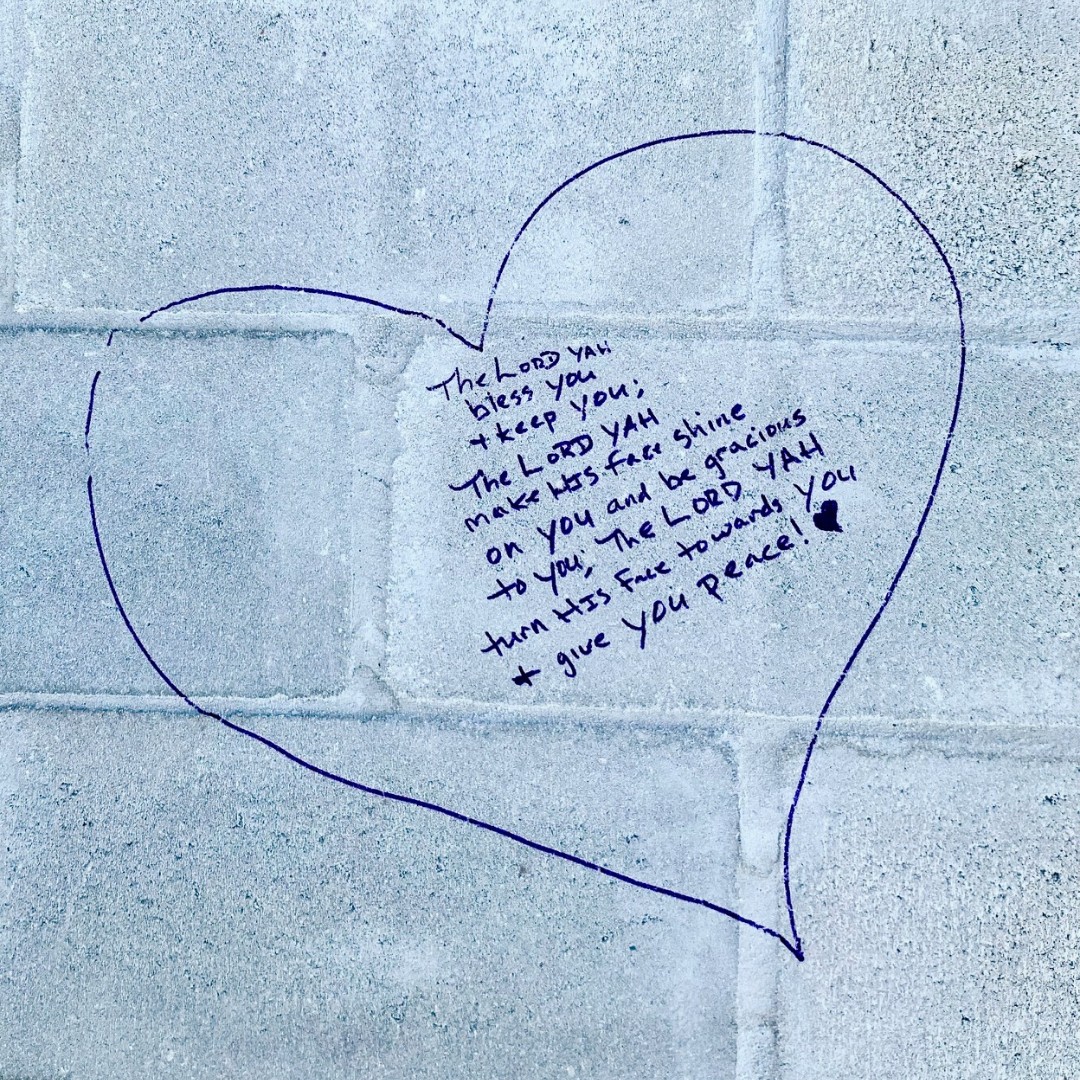 The LORD YAH
bless you
+ keep you;
The LORD YAH
make HIS face shine
on you and be gracious
to you; The LORD YAH
turn HIS Face towards you
+ give you peace! ♥